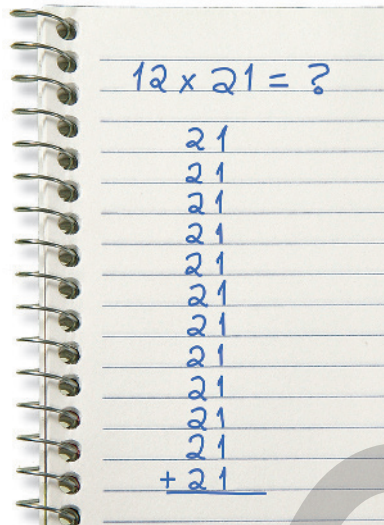 12 x 21 = ?
21
21
21
21
21
21
21
21
21
21
21
+ 21